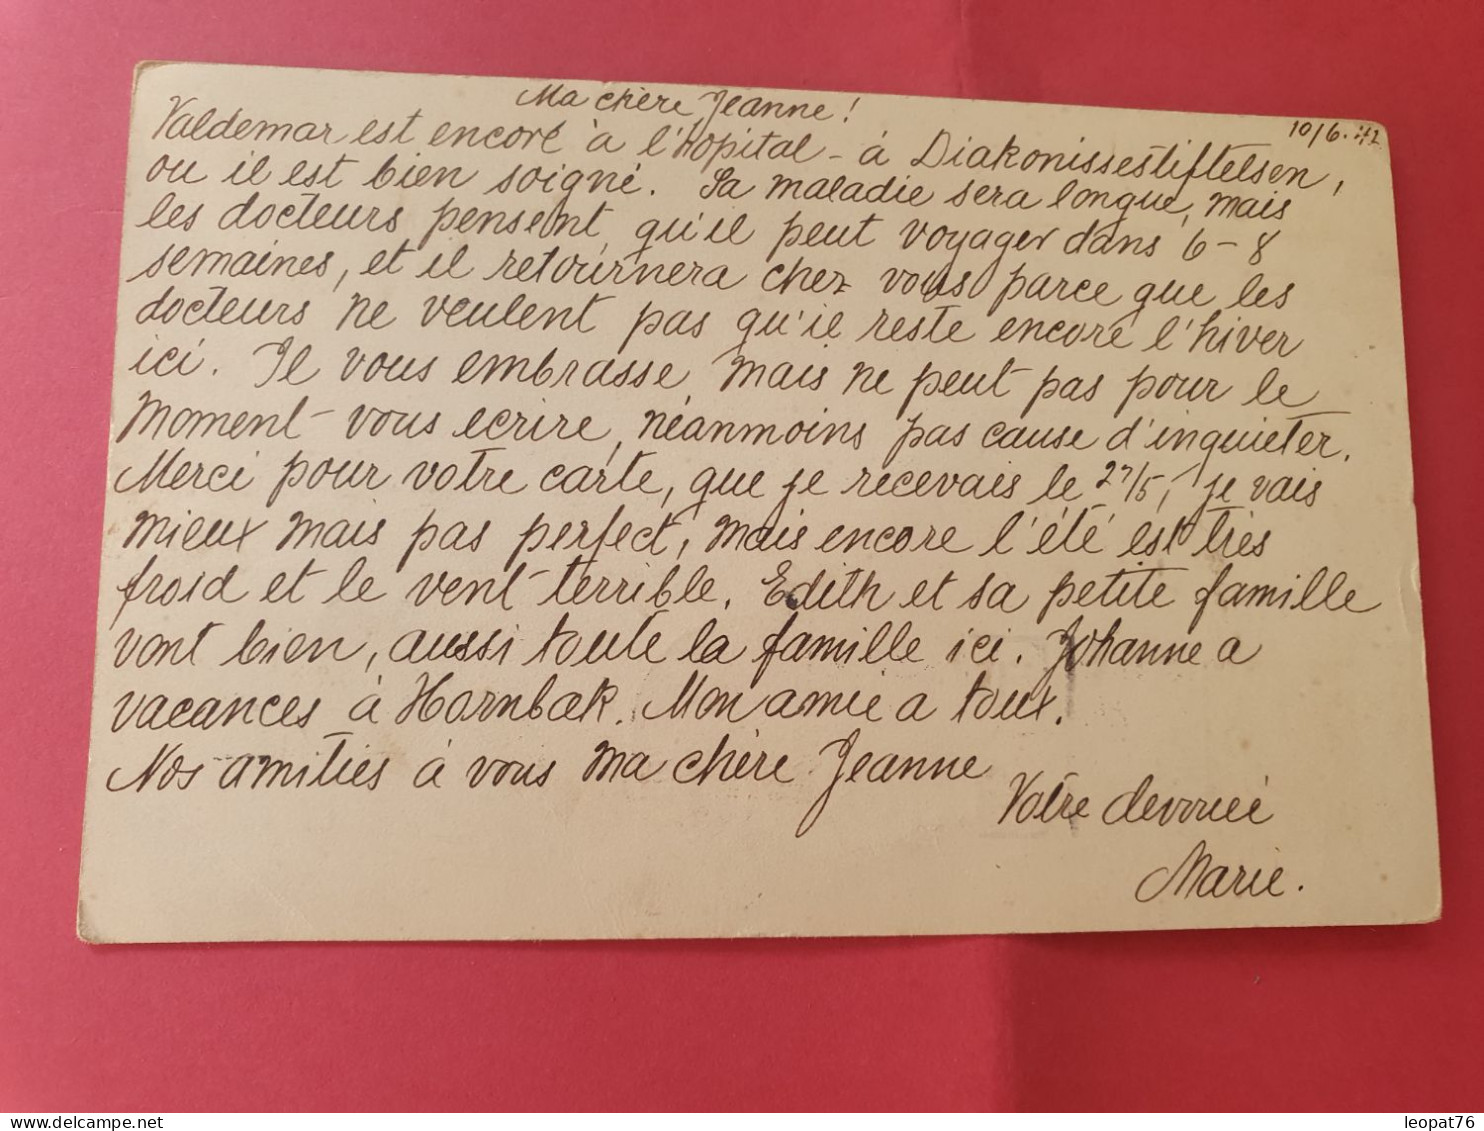 Ma chère Jeanne!
10/6. 42
Valdemar est encore à l'hopital - à Diakonissestiftelsen,
ou il est bien soigné. Sa maladie sera longue, mais
les docteurs pensent, qu'il peut voyager dans 6-8
semaines, et il retournera chez vous parce que les
docteurs ne veulent pas qu'il reste encore l'hiver
ici. Il vous embrasse mais ne peut pas pour le
moment vous ecrire, néanmoins pas cause d'inquieter.
Merci pour votre carte, que je recevais le 27/5, je vais
mieux mais pas perfect, mais encore l'été est très
froid et le vent terrible. Edith et sa petite famille
vont bien, aussi toute la famille ici. Johanne a
vacances à Hornbæk. Mon amie a toux.
Nos amitiés à vous ma chère Jeanne
Votre devouée
Marie.
leopat76